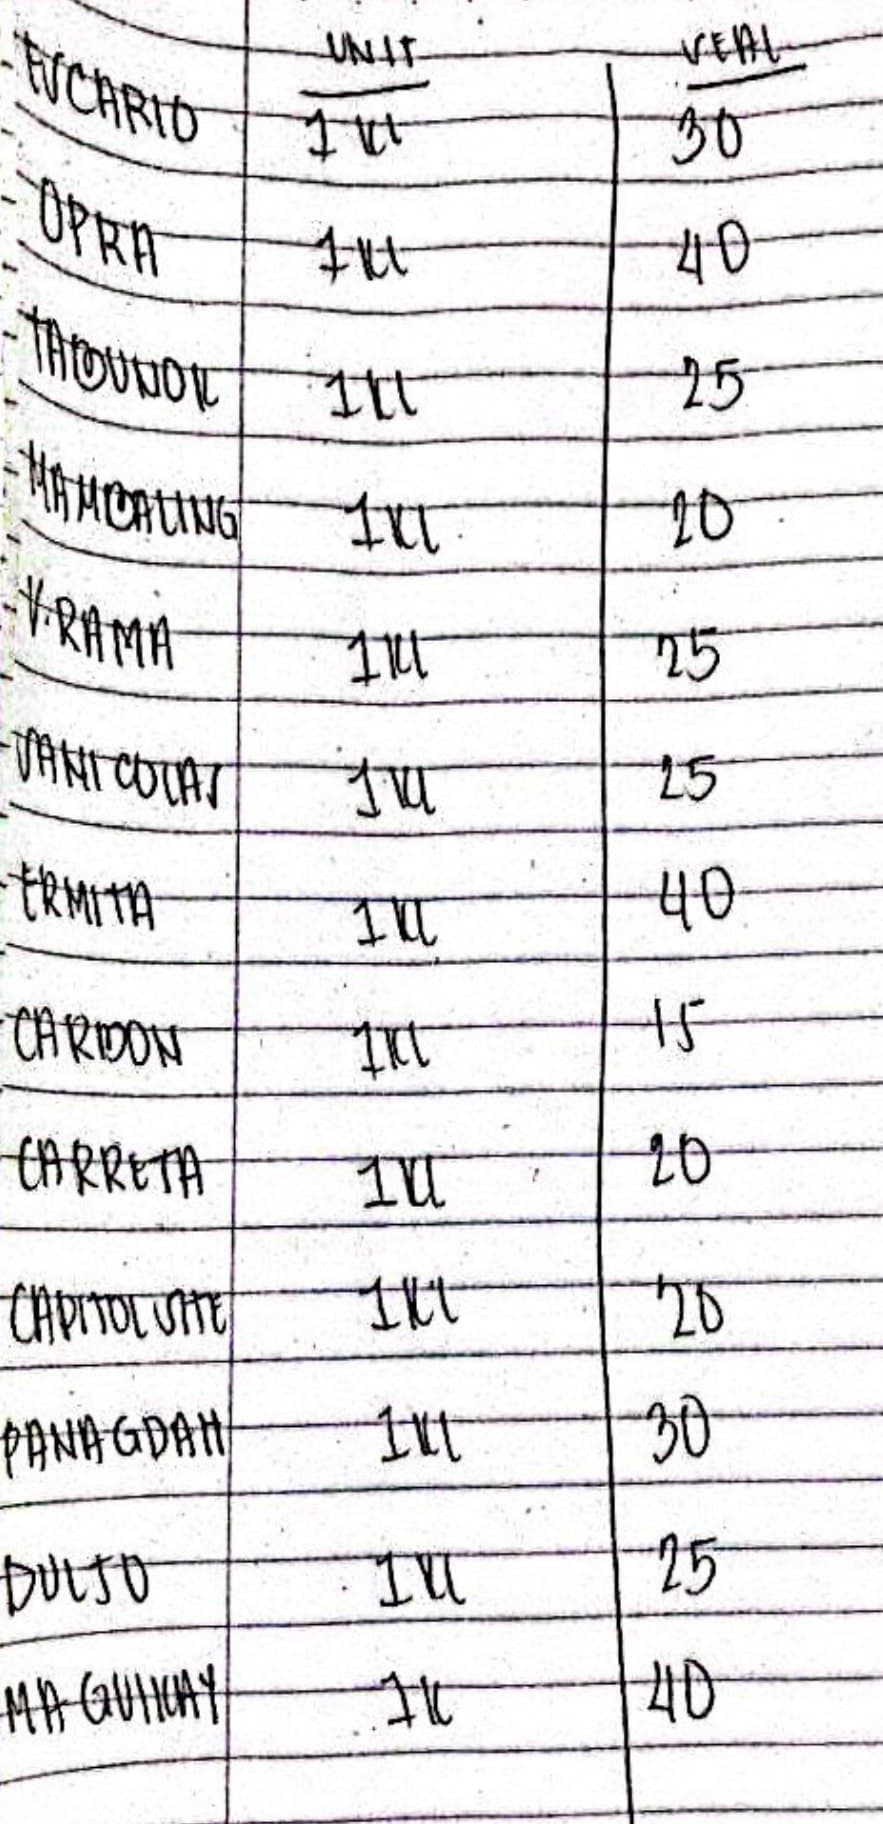 UNIT VEAL
EUCARIO 1 KL 30
OPRA 1 KL 40
TABUNOK 1 KL 25
MAMBALING 1 KL 20
V. RAMA 1 KL 25
SANICOLAS 1 KL 25
ERMITA 1 KL 40
CARBON 1 KL 15
CARRETA 1 KL 20
CAPITOL SITE 1 KL 20
PANAGDAH 1 KL 30
DULJO 1 KL 25
MAGUIKAY 1K 40